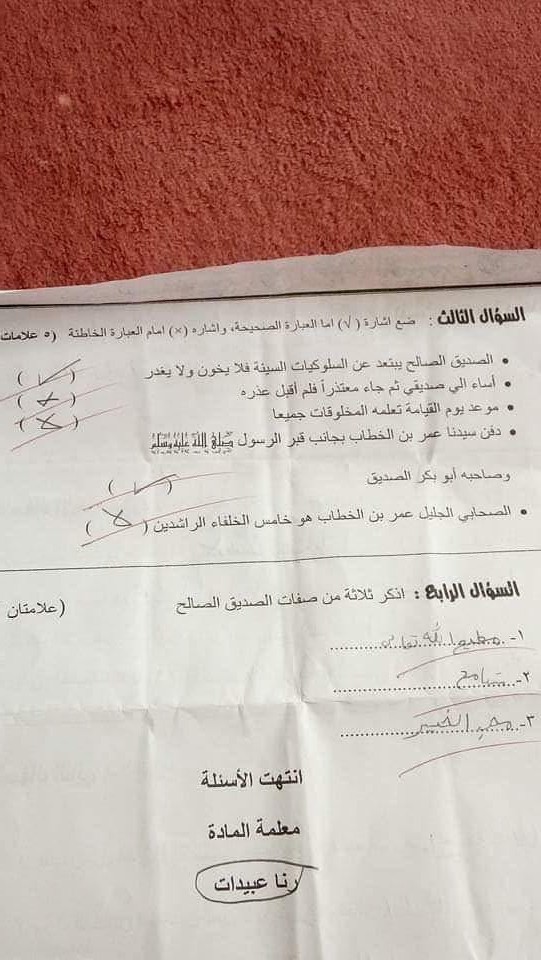 السؤال الثالث : ضع اشارة (√) اما العبارة الصحيحة، واشاره (×) امام العبارة الخاطئة (٥ علامات
• الصديق الصالح يبتعد عن السلوكيات السيئة فلا يخون ولا يغدر (✓)
• أساء الي صديقي ثم جاء معتذراً فلم أقبل عذره (×)
• موعد يوم القيامة تعلمه المخلوقات جميعا (×)
• دفن سيدنا عمر بن الخطاب بجانب قبر الرسول صلى الله عليه وسلم
وصاحبه أبو بكر الصديق (✓)
• الصحابي الجليل عمر بن الخطاب هو خامس الخلفاء الراشدين (×)
السؤال الرابع : اذكر ثلاثة من صفات الصديق الصالح (علامتان
١- مطيع لله تعالى
٢- متسامح
٣- محب الخير
انتهت الأسئلة
معلمة المادة
رنا عبيدات